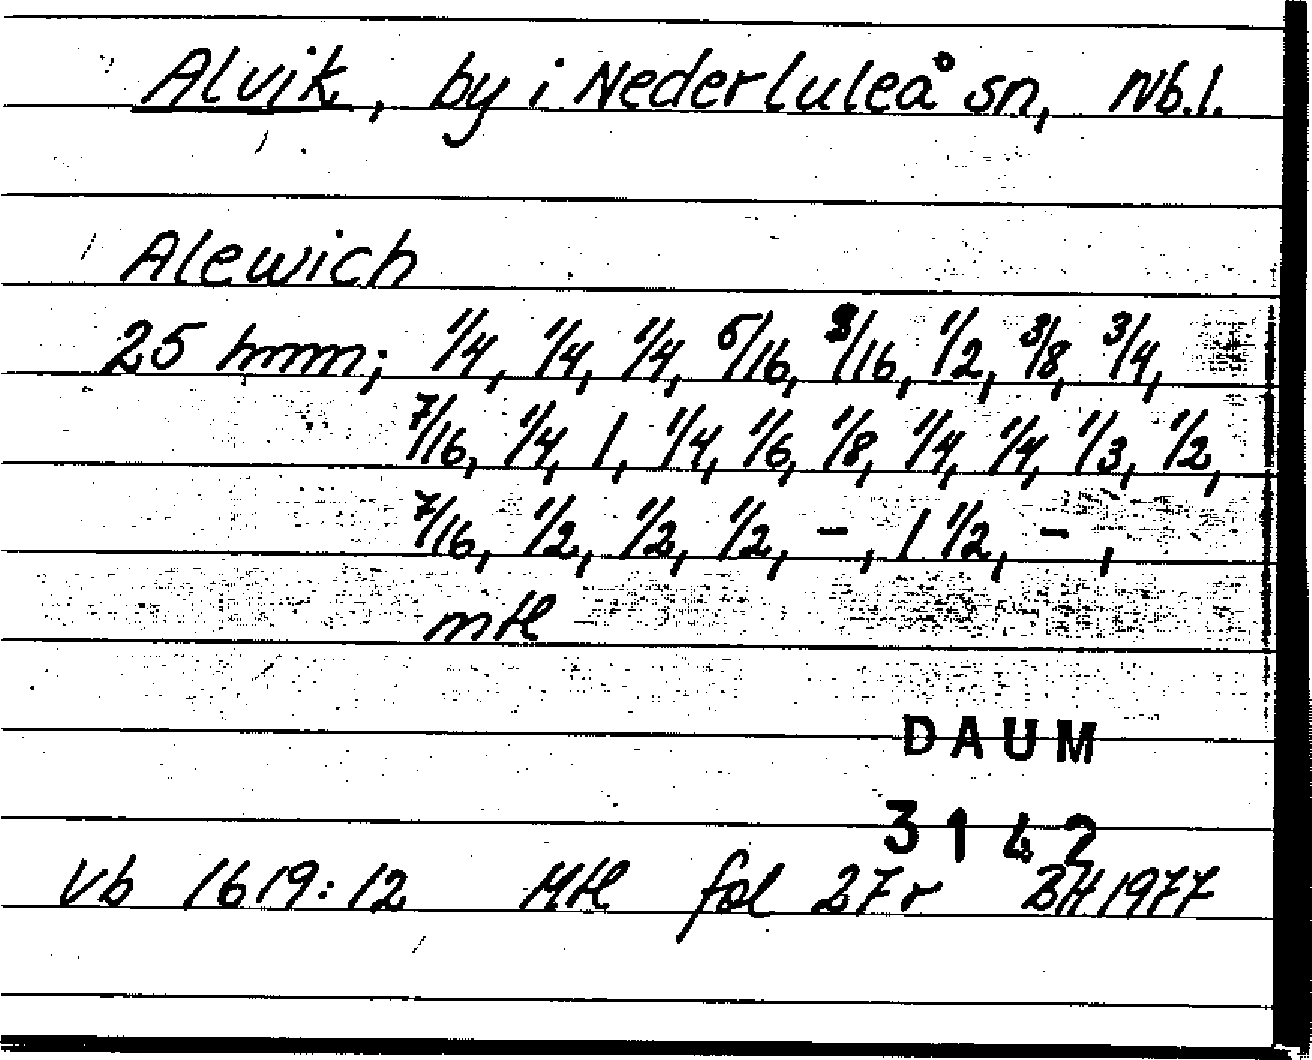 Alvik, by i Nederluleå sn, Nb.l.
Alewich
25 hmm; 1/4, 1/4, 1/4, 5/16, 3/16, 1/2, 3/8, 3/4,
7/16, 1/4, 1, 1/4, 1/6, 1/8, 1/4, 1/4, 1/3, 1/2,
7/16, 1/2, 1/2, 1/2, -, 1 1/2, -,
mtl
DAUM
3142
Vb 1619:12 Mtl fol 27r BH 1977